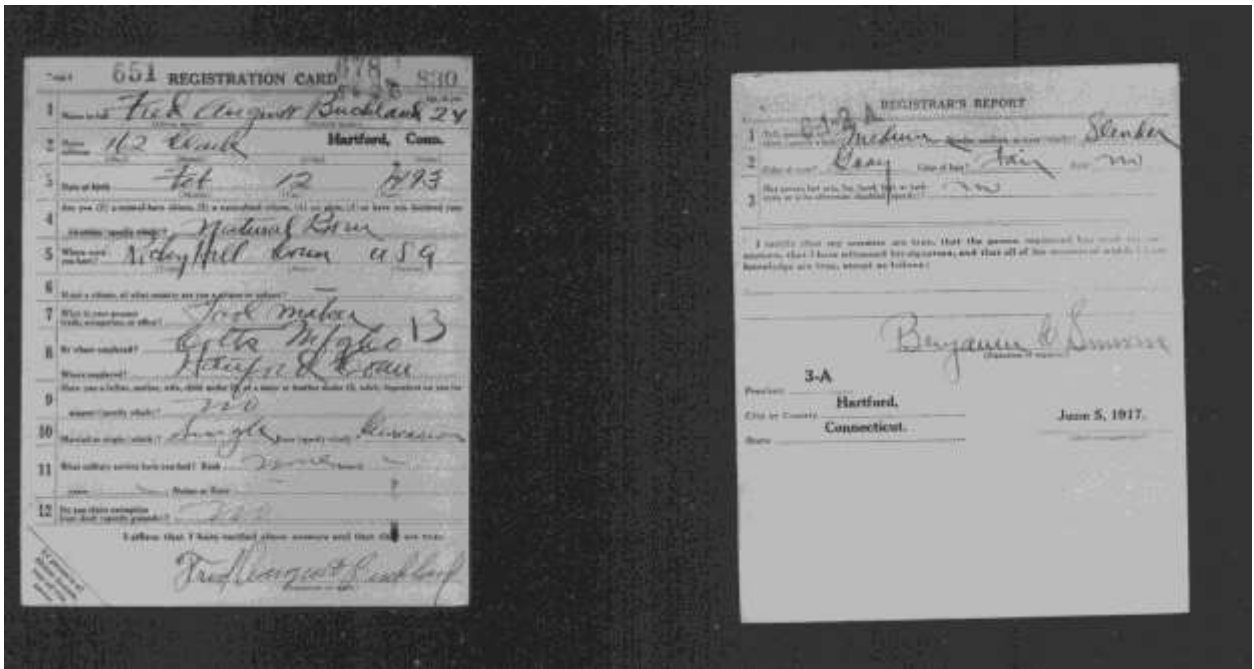 651 REGISTRATION CARD 678 830
1 Name in full Fred August Buckland 24
2 Home address 112 Hartford, Conn.
3 Date of birth Feb 12 1893
4 Are you (1) a natural-born citizen, (2) a naturalized citizen, (3) an alien, (4) or have you declared your
intention (specify which)? Natural Born
5 Where were you born? Rocky Hill Conn USA
6 If not a citizen, of what country are you a citizen or subject? —
7 What is your present trade, occupation, or office? Tool maker 13
8 By whom employed? Colts Mfg Co
Where employed? Hartford Conn
9 Have you a father, mother, wife, child under 12, or a sister or brother under 12, solely dependent on you for
support (specify which)? no
10 Married or single (which)? Single Race (specify which)? Caucasian
11 What military service have you had? Rank none
years Nation or State
12 Do you claim exemption from draft (specify grounds)?
I affirm that I have verified above answers and that they are true.
Fred August Buckland
REGISTRAR'S REPORT
1 Medium Slender
2 Color of eyes? Gray Color of hair? Fair no
3 Has person lost arm, leg, hand, foot, or both eyes, or is he otherwise disabled (specify)? no
I certify that my answers are true, that the person registered has read his own
answers, that I have witnessed his signature, and that all of his answers of which I have
knowledge are true, except as follows:
Benjamin
(Signature of registrar)
Precinct 3-A
City or County Hartford,
State Connecticut.
June 5, 1917.